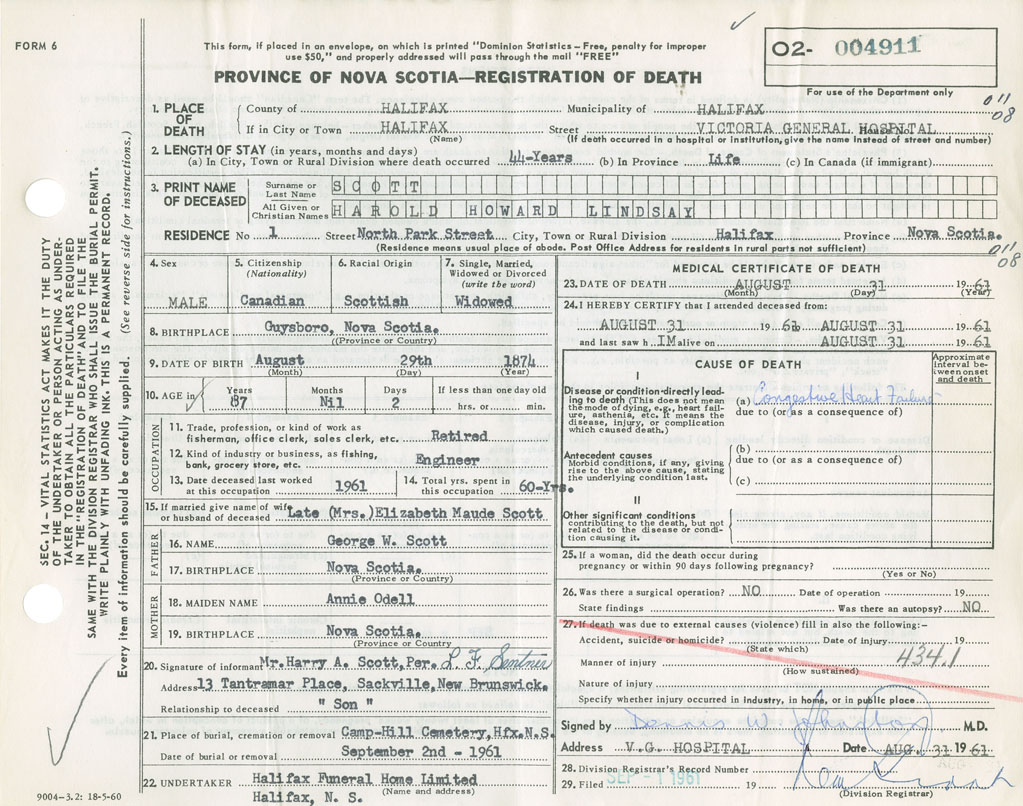 FORM 6
This form, if placed in an envelope, on which is printed "Dominion Statistics – Free, penalty for improper
use $50," and properly addressed will pass through the mail "FREE"
PROVINCE OF NOVA SCOTIA—REGISTRATION OF DEATH
02- 004911
For use of the Department only
011
08
1. PLACE OF DEATH
County of HALIFAX Municipality of HALIFAX
If in City or Town HALIFAX Street VICTORIA GENERAL HOSPITAL
(Name) (If death occurred in a hospital or institution, give the name instead of street and number)
2. LENGTH OF STAY (in years, months and days)
(a) In City, Town or Rural Division where death occurred 44-Years (b) In Province Life (c) In Canada (if immigrant)
3. PRINT NAME OF DECEASED
Surname or Last Name SCOTT
All Given or Christian Names HAROLD HOWARD LINDSAY
RESIDENCE No 1 Street North Park Street City, Town or Rural Division Halifax Province Nova Scotia.
(Residence means usual place of abode. Post Office Address for residents in rural parts not sufficient)
011
08
4. Sex
MALE
5. Citizenship
(Nationality)
Canadian
6. Racial Origin
Scottish
7. Single, Married, Widowed or Divorced
(write the word)
Widowed
8. BIRTHPLACE Guysboro, Nova Scotia.
(Province or Country)
9. DATE OF BIRTH August 29th 1874
(Month) (Day) (Year)
10. AGE in
Years Months Days If less than one day old
87 Nil 2 hrs. or min.
OCCUPATION
11. Trade, profession, or kind of work as
fisherman, office clerk, sales clerk, etc. Retired
12. Kind of industry or business, as fishing,
bank, grocery store, etc. Engineer
13. Date deceased last worked
at this occupation 1961
14. Total yrs. spent in
this occupation 60-Yrs.
15. If married give name of wife
or husband of deceased Late (Mrs.) Elizabeth Maude Scott
FATHER
16. NAME George W. Scott
17. BIRTHPLACE Nova Scotia.
(Province or Country)
MOTHER
18. MAIDEN NAME Annie Odell
19. BIRTHPLACE Nova Scotia.
(Province or Country)
20. Signature of informant Mr. Harry A. Scott, Per. L. F.
Address 13 Tantramar Place, Sackville, New Brunswick.
Relationship to deceased " Son "
21. Place of burial, cremation or removal Camp-Hill Cemetery, Hfx. N.S.
Date of burial or removal September 2nd - 1961
22. UNDERTAKER Halifax Funeral Home Limited
(Name and address)
Halifax, N. S.
9004-3.2: 18-5-60
MEDICAL CERTIFICATE OF DEATH
23. DATE OF DEATH AUGUST 31 1961
(Month) (Day) (Year)
24. I HEREBY CERTIFY that I attended deceased from:
AUGUST 31 1961 AUGUST 31 1961
and last saw h IM alive on AUGUST 31 1961
CAUSE OF DEATH
Approximate interval between onset and death
I
Disease or condition directly leading to death (This does not mean the mode of dying, e.g., heart failure, asthenia, etc. It means the disease, injury, or complication which caused death.)
(a) Congestive Heart Failure
due to (or as a consequence of)
Antecedent causes
Morbid conditions, if any, giving rise to the above cause, stating the underlying condition last.
(b)
due to (or as a consequence of)
(c)
II
Other significant conditions
contributing to the death, but not related to the disease or condition causing it.
25. If a woman, did the death occur during
pregnancy or within 90 days following pregnancy?
(Yes or No)
26. Was there a surgical operation? NO Date of operation 19
State findings Was there an autopsy? NO
27. If death was due to external causes (violence) fill in also the following:–
Accident, suicide or homicide? Date of injury 19
(State which)
434.1
Manner of injury
(How sustained)
Nature of injury
Specify whether injury occurred in industry, in home, or in public place
Signed by Dennis W. Johnston M.D.
Address V.G. HOSPITAL Date AUG. 31 1961
28. Division Registrar's Record Number
29. Filed SEP -1 1961 19
(Division Registrar)
SEC. 14 – VITAL STATISTICS ACT MAKES IT THE DUTY
OF THE UNDERTAKER OR PERSON ACTING AS UNDER-
TAKER TO OBTAIN ALL THE PARTICULARS REQUIRED
IN THE "REGISTRATION OF DEATH" AND TO FILE THE
SAME WITH THE DIVISION REGISTRAR WHO SHALL ISSUE THE BURIAL PERMIT.
WRITE PLAINLY WITH UNFADING INK. THIS IS A PERMANENT RECORD.
Every item of information should be carefully supplied. (See reverse side for instructions.)